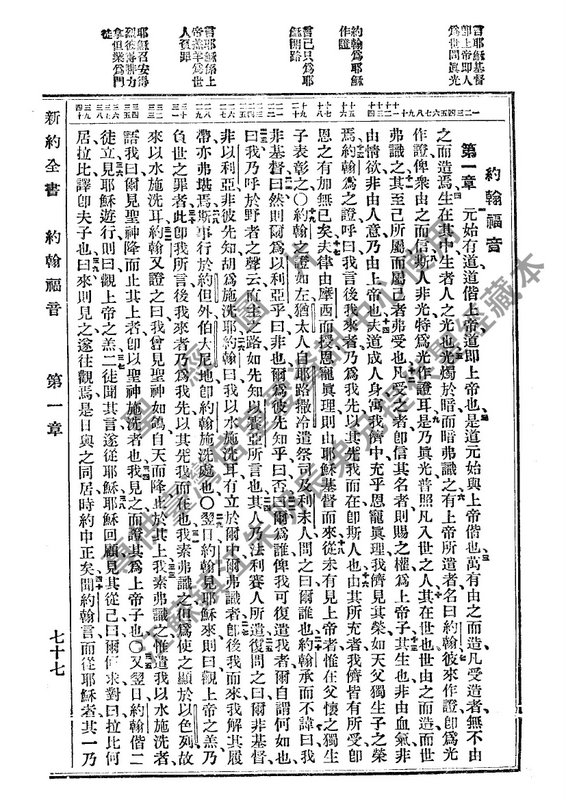 言耶穌基督
卽上帝卽人
爲世間眞光
約翰爲耶穌
作證
言己只爲耶
穌開路
言耶穌係上
帝羔羊爲世
人負罪
耶穌召安得
烈彼得腓力
拿但業爲門
徒
約翰福音
第一章 元始有道道偕上帝道卽上帝也是道元始與上帝偕也萬有由之而造凡受造者無不由
之而造焉生在其中生者人之光也光燭於暗而暗弗識之有上帝所遣者名曰約翰彼來作證卽爲光
作證俾衆由之而信斯人非光特爲光作證耳是乃眞光普照凡入世之人其在世也世由之而造而世
弗識之其至己所屬而屬己者弗受也凡受之者卽信其名者則賜之權爲上帝子其生也非由血氣非
由情欲非由人意乃由上帝也夫道成人身寓我儕中充乎恩寵眞理我儕見其榮如天父獨生子之榮
焉約翰爲之證呼曰我言後我來者乃爲我先以其先我而在卽斯人也由其所充者我儕皆有所受卽
恩之有加無已矣夫律由摩西而授恩寵眞理則由耶穌基督而來從未有見上帝者惟在父懷之獨生
子表彰之〇約翰之證如左猶太人自耶路撒冷遣祭司及利未人問之曰爾誰也約翰承而不諱曰我
非基督曰然則爾爲以利亞乎曰非也爾爲彼先知乎曰否曰爾爲誰俾我可復遣我者爾自謂何如也
曰我乃呼於野者之聲云直主之路如先知以賽亞所言也其人乃法利賽人所遣復問之曰爾非基督
非以利亞非彼先知胡爲施洗耶約翰曰我以水施洗耳有立於爾中爾弗識者卽後我而來我解其履
帶亦弗堪焉斯事行於約但外伯大尼地卽約翰施洗處也〇翌日約翰見耶穌來則曰觀上帝之羔乃
負世之罪者此卽我所言後我來者乃爲我先以其先我而在也我素弗識之但爲使之顯於以色列故
來以水施洗耳約翰又證之曰我曾見聖神如鴿自天而降止於其上我素弗識之惟遣我以水施洗者
語我曰爾見聖神降而止其上者卽以聖神施洗者也我見之而證其爲上帝子也〇又翌日約翰偕二
徒立見耶穌遊行則曰觀上帝之羔二徒聞其言遂從耶穌耶穌回顧見其從己曰爾何求對曰拉比何
居拉比譯卽夫子也曰來則見之遂往觀焉是日與之同居時約申正矣聞約翰言而從耶穌者其一乃
新約全書 約翰福音 第一章 七十七